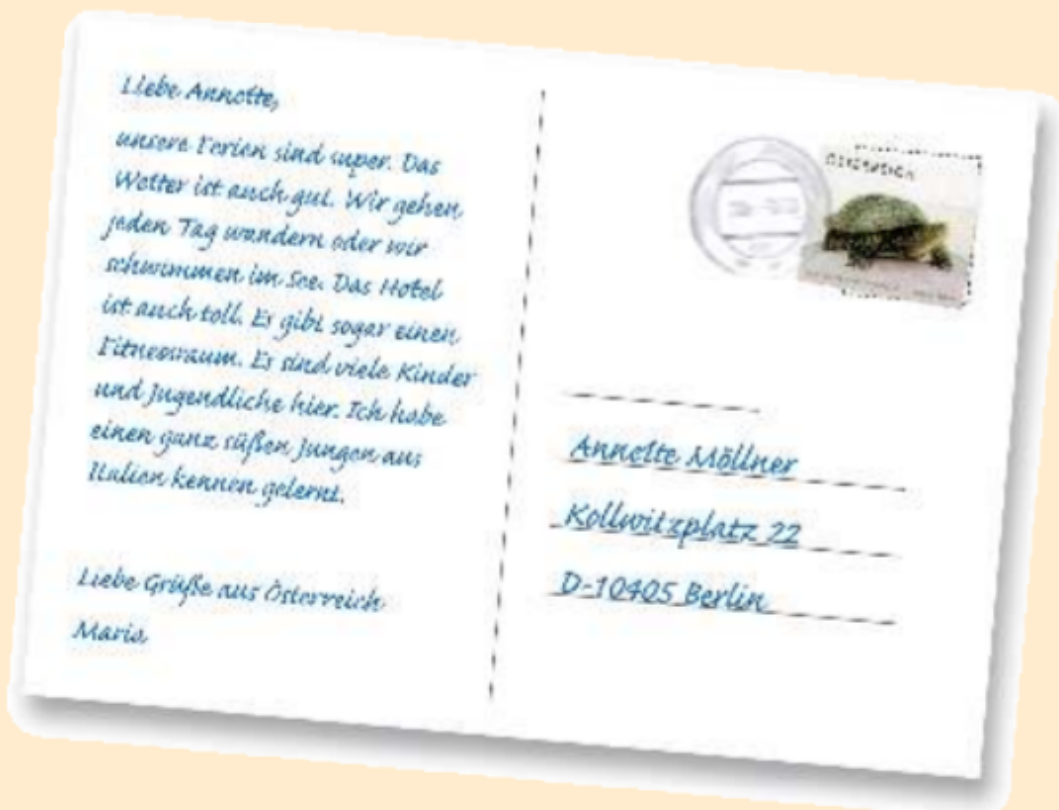 Liebe Annette,
unsere Ferien sind super. Das
Wetter ist auch gut. Wir gehen
jeden Tag wandern oder wir
schwimmen im See. Das Hotel
ist auch toll. Es gibt sogar einen
Fitnessraum. Es sind viele Kinder
und Jugendliche hier. Ich habe
einen ganz süßen Jungen aus
Italien kennen gelernt.
Liebe Grüße aus Österreich
Maria
Annette Möllner
Kollwitzplatz 22
D-10405 Berlin